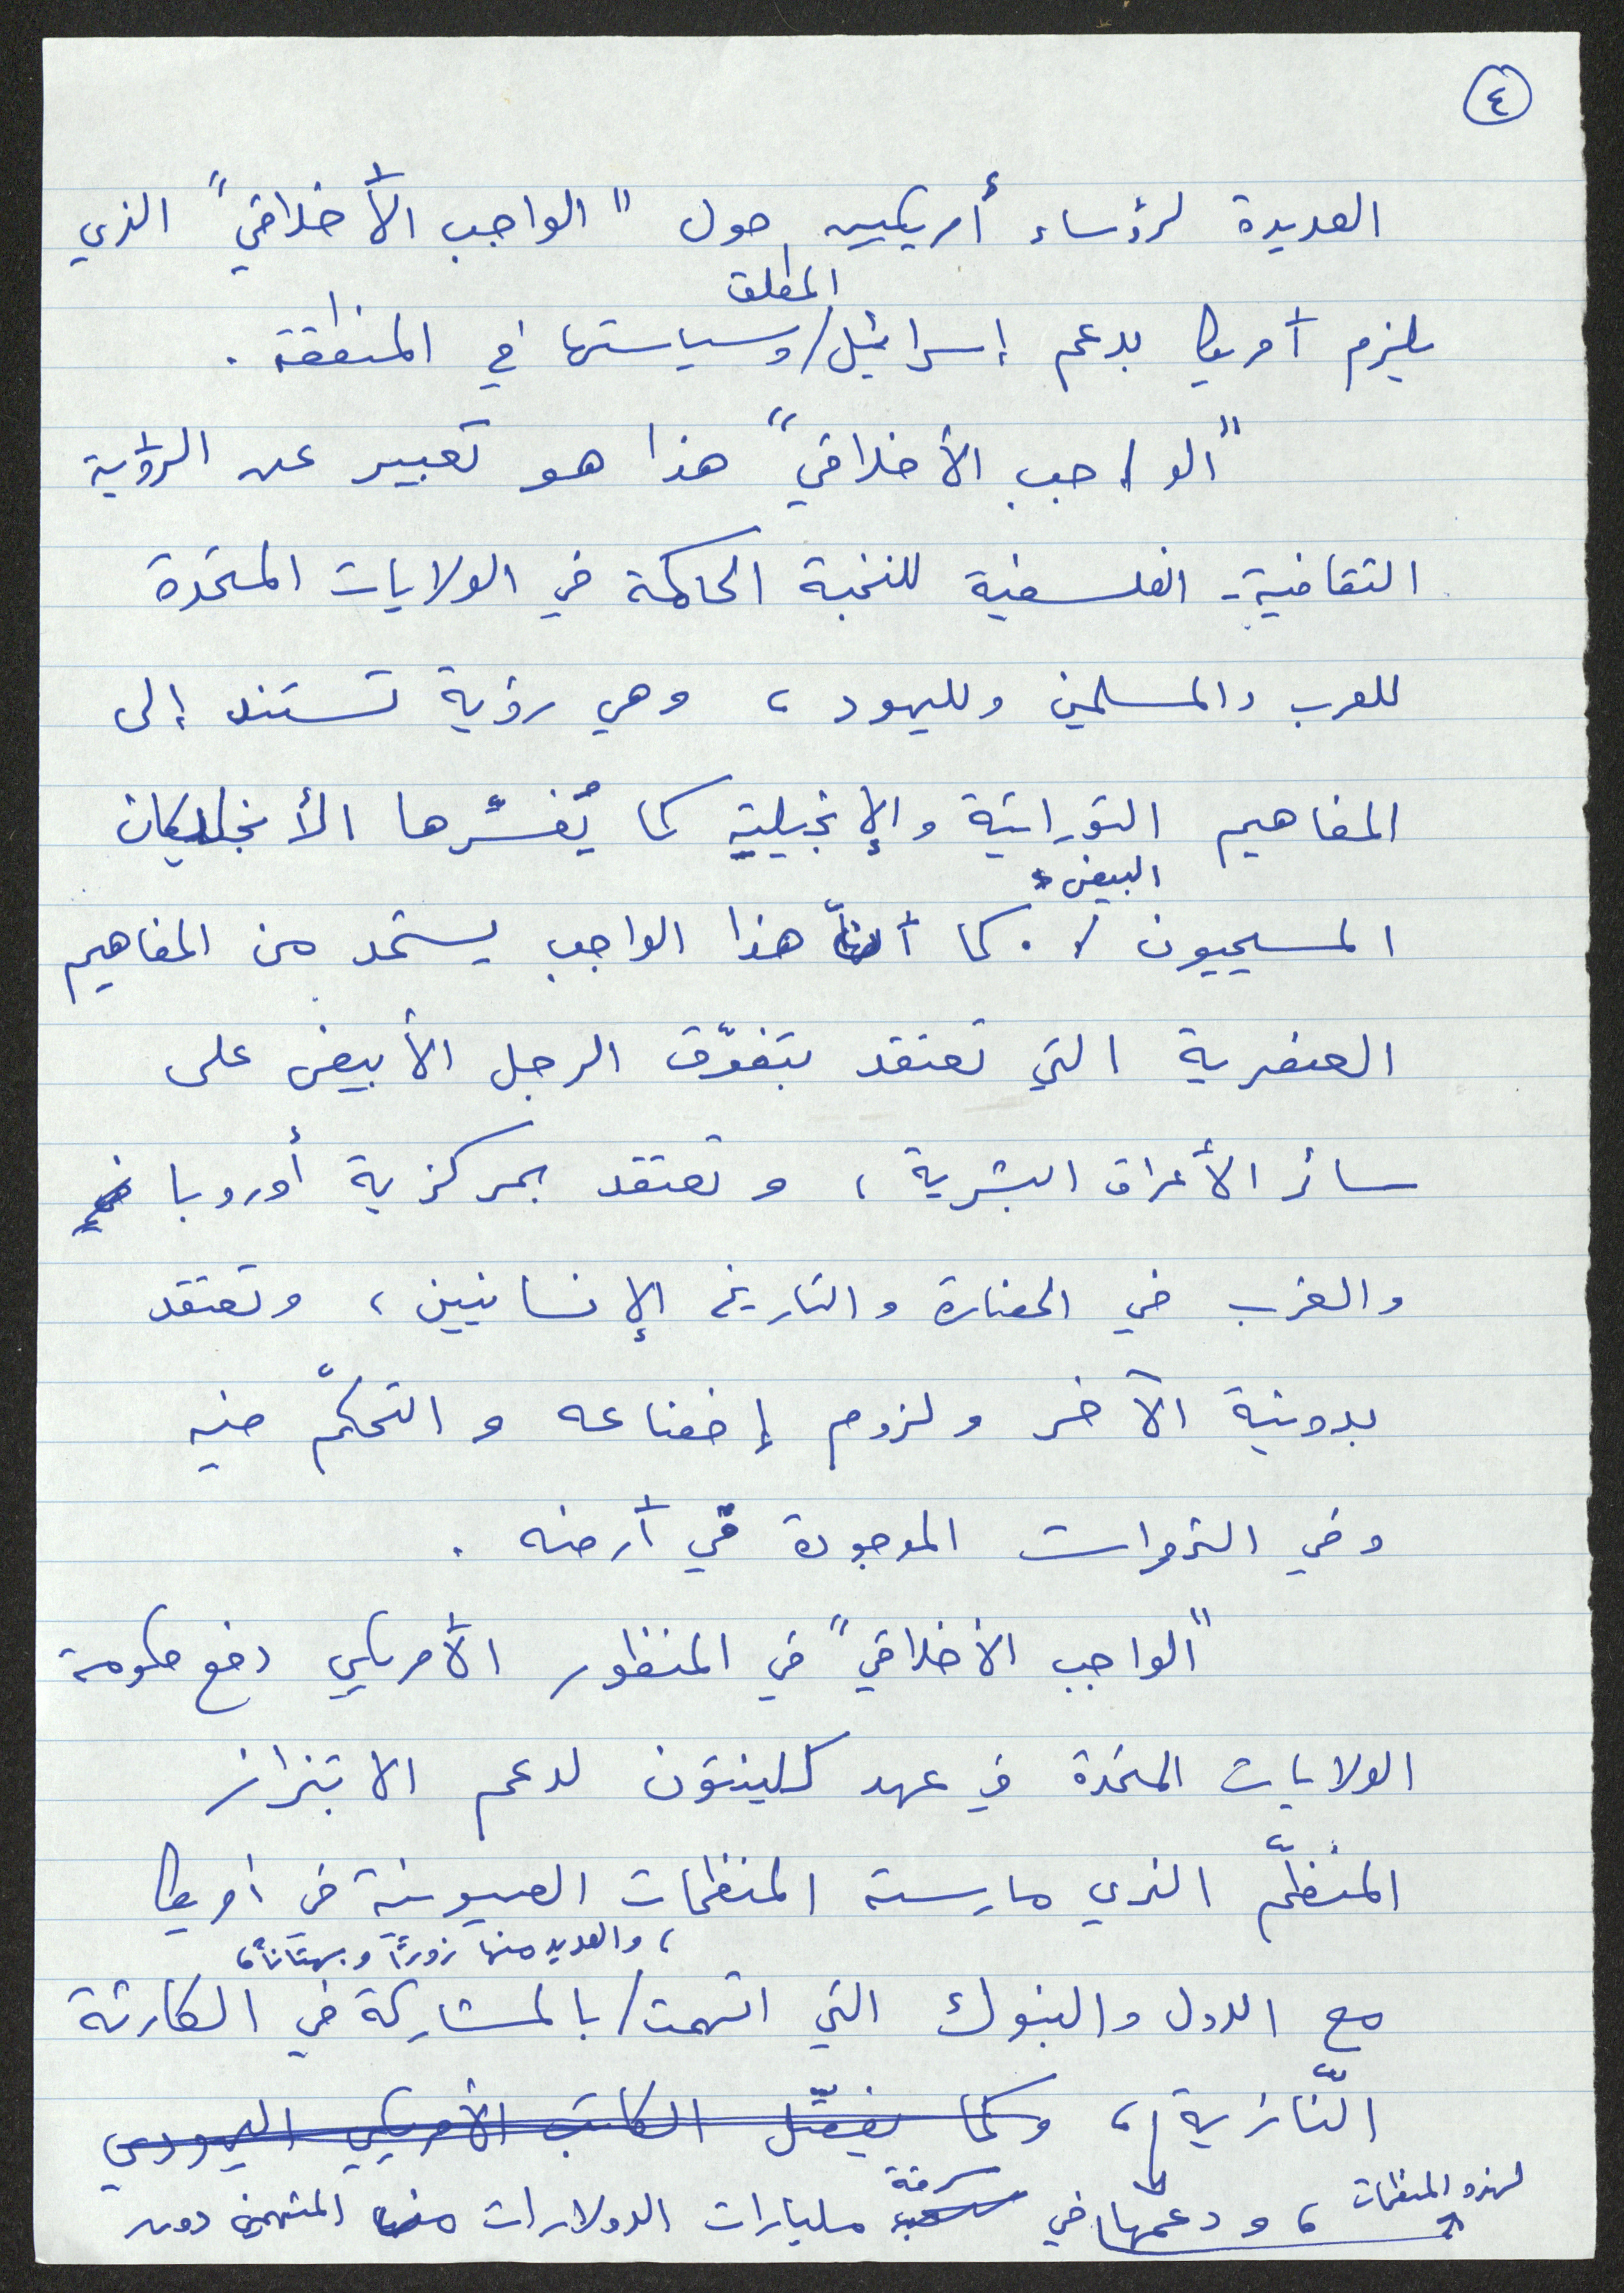 ٤
العديدة لرؤساء أمريكيين حول "الواجب الأخلاقي" الذي
المطلق
يلزم أمريكا بدعم إسرائيل/وسياستها في المنطقة .
"الواجب الأخلاقي" هذا هو تعبير عن الرؤية
الثقافية - الفلسفية للنخبة الحاكمة في الولايات المتحدة
للعرب والمسلمين ولليهود ، وهي رؤية تستند إلى
المفاهيم التوراتية والإنجيلية كما يُفسِّرها الأنجليكان
البيض
المسيحيون / . كما أنّ هذا الواجب يستمد من المفاهيم
العنصرية التي تعتقد بتفوّق الرجل الأبيض على
سائر الأعراق البشرية ، وتعتقد بمركزية أوروبا
والغرب في الحضارة والتاريخ الإنسانيين ، وتعتقد
بدونية الآخر ولزوم إخضاعه والتحكّم فيه
وفي الثروات الموجودة في أرضه .
"الواجب الأخلاقي" في المنظور الأمريكي دفع حكومة
الولايات المتحدة في عهد كلينتون لدعم الابتزاز
المنظّم الذي مارسته المنظمات الصهيونية في أمريكا
، والعديد منها زوراً وبهتاناً ،
مع الدول والبنوك التي اتهمت/بالمشاركة في الكارثة
النّازية ، وكما يفصّل الكاتب الأمريكي اليهودي
لهذه المنظمات
، ودعمها في سرقة مليارات الدولارات المتهمين دون